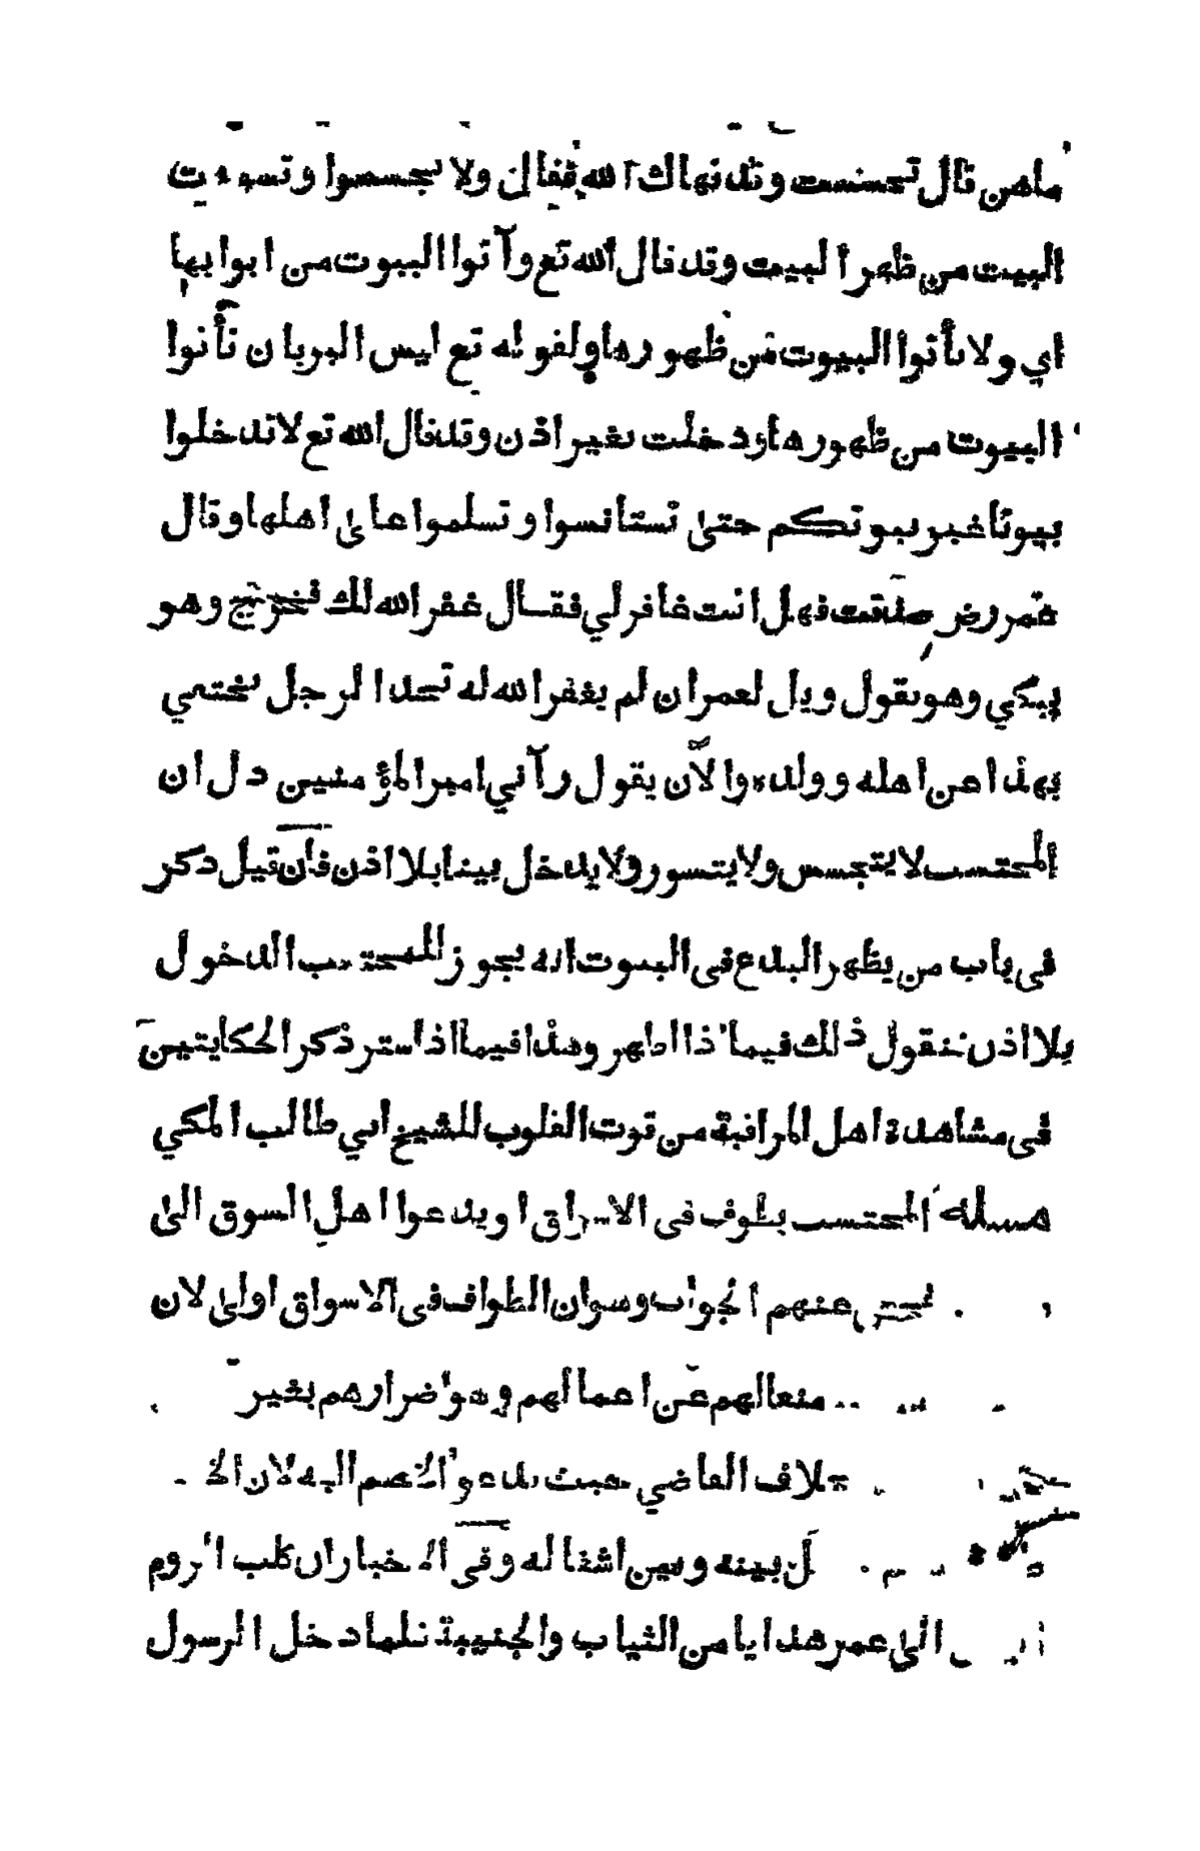 ماهن قال تجسست وقد نهاك الله فقال ولا تجسسوا وتسورت
البيت من ظهر البيت وقد قال الله تع وآتوا البيوت من ابوابها
اي ولا تأتوا البيوت من ظهورها ولقوله تع ليس البر بان تأتوا
البيوت من ظهورها ودخلت بغير اذن وقد قال الله تع لا تدخلوا
بيوتا غير بيوتكم حتى تستانسوا وتسلموا على اهلها وقال
عمر رض صدقت فهل انت غافر لي فقال غفر الله لك فخرج وهو
يبكي وهو يقول ويل لعمر ان لم يغفر الله له تجد الرجل يختفي
بهذا عن اهله وولده والآن يقول رآني امير المؤمنين دل ان
المحتسب لا يتجسس ولا يتسور ولا يدخل بيتا بلا اذن فان قيل ذكر
فى باب من يظهر البدع فى البيوت انه يجوز للمحتسب الدخول
بلا اذن فنقول ذلك فيما اذا اظهر وهذا فيما اذا ستر ذكر الحكايتين
فى مشاهدة اهل المراقبة من قوت القلوب للشيخ ابي طالب المكي
مسئلة المحتسب يطوف فى الاسواق او يدعوا اهل السوق الى
عنهم الجواب وسوان الطواف فى الاسواق اولى لان
منعا لهم عن اعمالهم وهو اضرارهم بغير
خلاف القاضي حيث يدعو الخصم اليه لان
بينه وبين اشغاله وفى الاخبار ان كلب الروم
الى عمر هدايا من الثياب والجنيبة فلما دخل الرسول